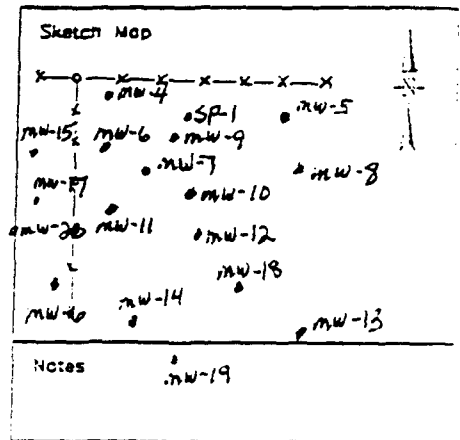 Sketch Map
MW-4
SP-1
MW-5
MW-15
MW-6
MW-9
MW-7
MW-8
MW-17
MW-10
MW-20
MW-11
MW-12
MW-18
MW-16
MW-14
MW-13
Notes
MW-19